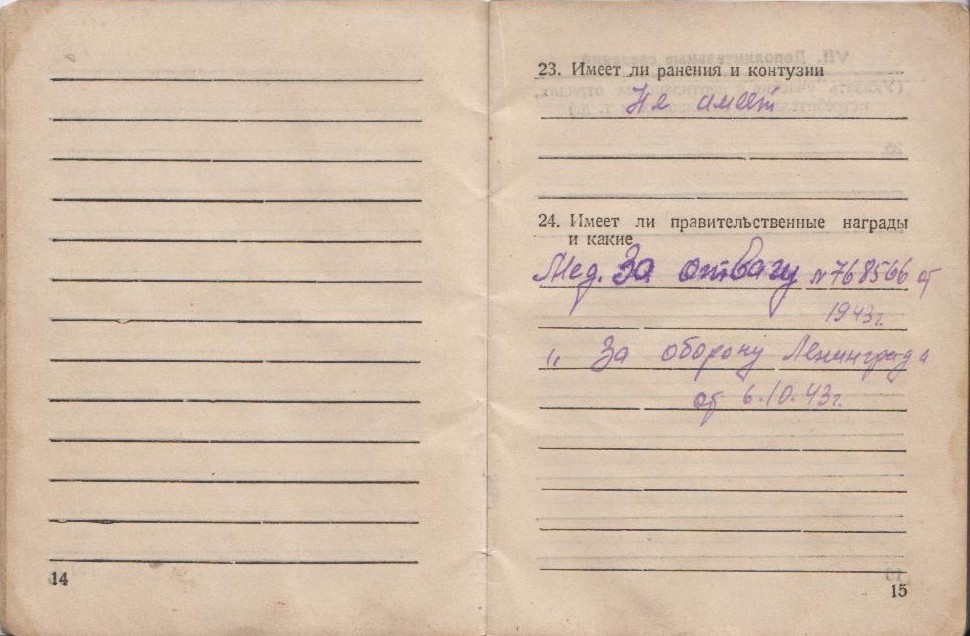 23. Имеет ли ранения и контузии
Не имеет
24. Имеет ли правительственные награды
и какие
Мед. За отвагу №768566 от
1943г.
" За оборону Ленинграда
от 6.10.43г.
14
15